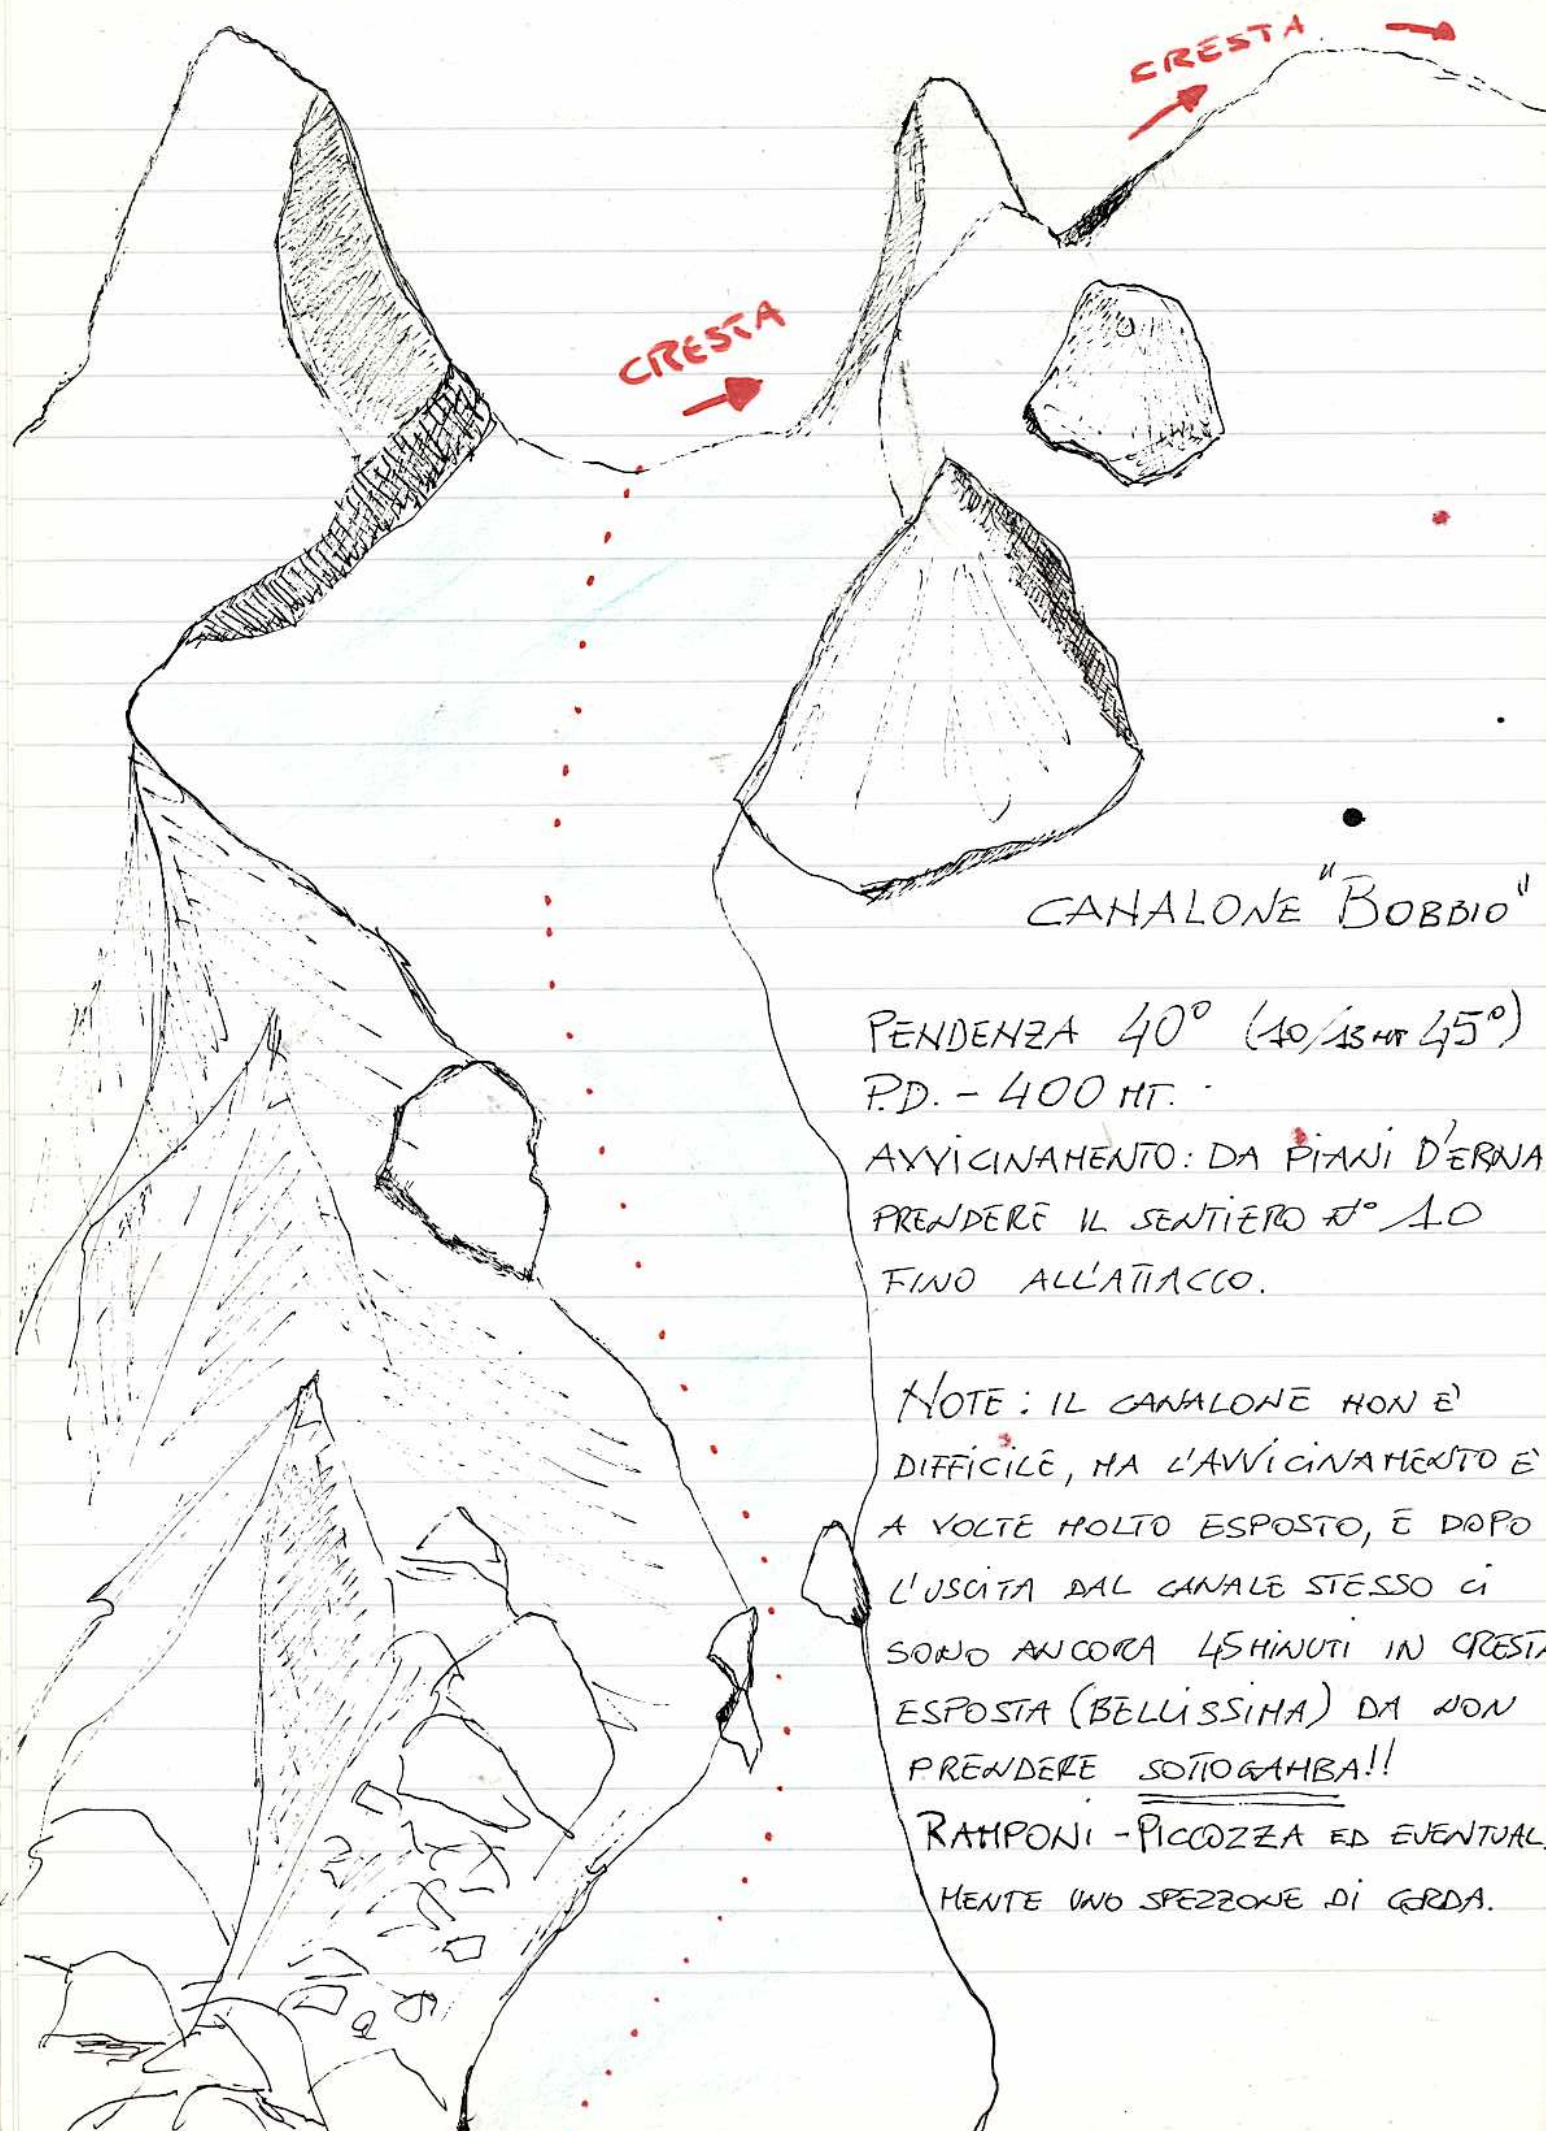 CRESTA
CRESTA
CANALONE "BOBBIO"
PENDENZA 40° (10/15 MT 45°)
P.D. - 400 MT.
AVVICINAMENTO: DA PIANI D'ERNA
PRENDERE IL SENTIERO N° 10
FINO ALL'ATTACCO.
NOTE: IL CANALONE NON E'
DIFFICILE, MA L'AVVICINAMENTO E'
A VOLTE MOLTO ESPOSTO, E DOPO
L'USCITA DAL CANALE STESSO CI
SONO ANCORA 45 MINUTI IN CRESTA
ESPOSTA (BELLISSIMA) DA NON
PRENDERE SOTTOGAMBA!!
RAMPONI - PICCOZZA ED EVENTUAL
MENTE UNO SPEZZONE DI CORDA.